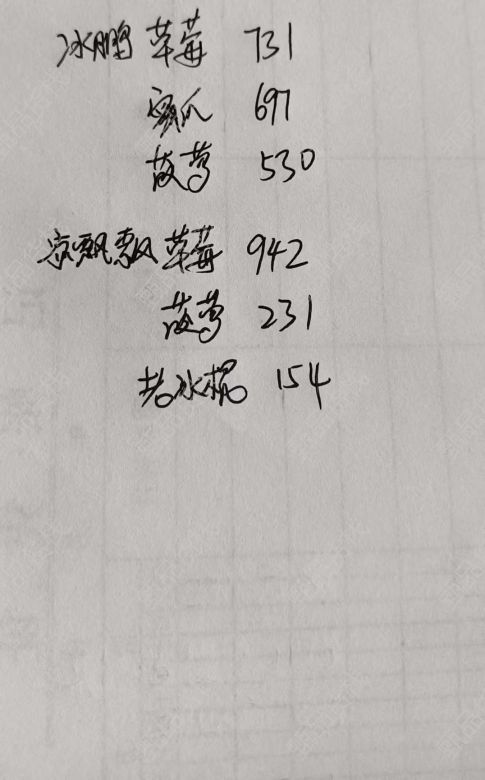 冰鹏 草莓 731
蜜瓜 697
菠萝 530
凉飘飘 草莓 942
菠萝 231
老冰棍 154